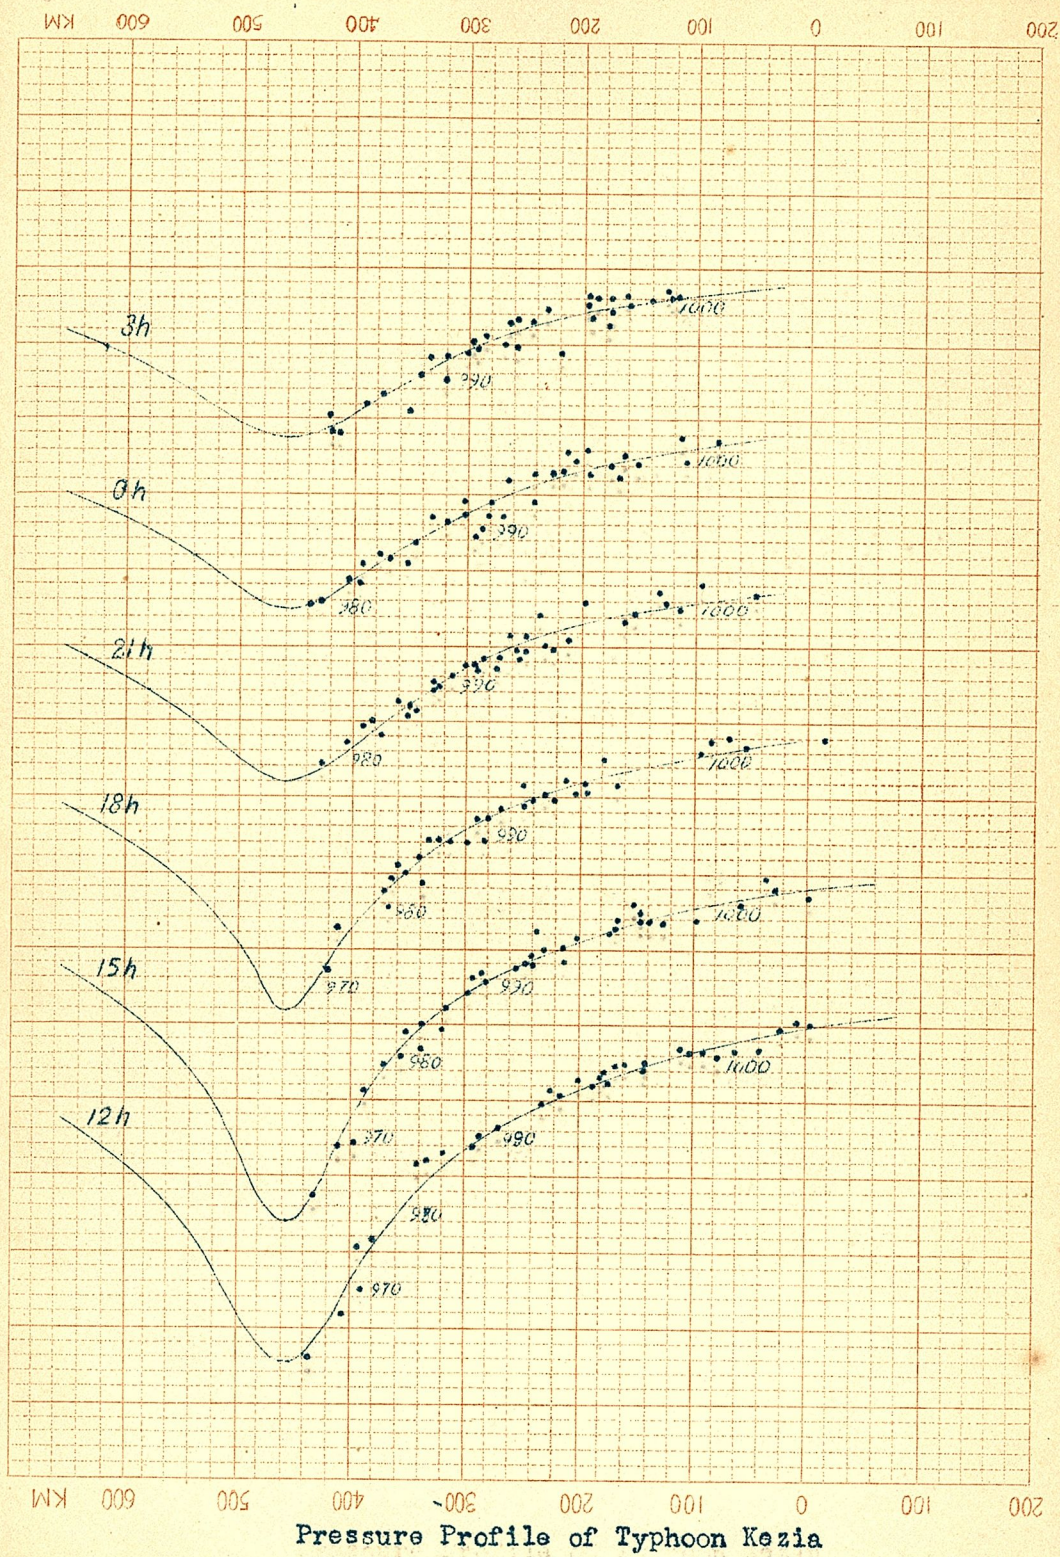 KM 600 500 400 300 200 100 0 100 200
3h
1000
990
0h
1000
990
980
21h
1000
990
980
18h
1000
990
980
970
15h
1000
990
980
970
12h
1000
990
980
970
KM 600 500 400 300 200 100 0 100 200
Pressure Profile of Typhoon Kezia